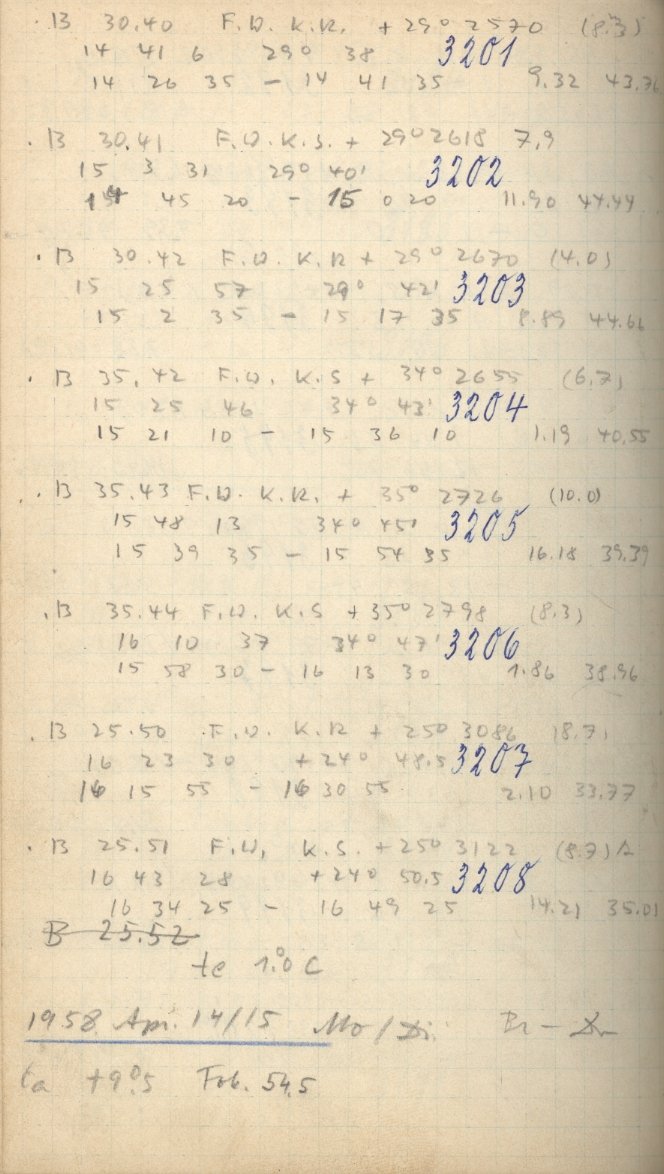 B 30.40 F.W. K.R. + 29° 2570 (8.3)
14 41 6 29° 38 3201
14 26 35 – 14 41 35 9.32 43.76
. B 30.41 F.W. K.S. + 29° 2618 7,9
15 3 31 29° 40' 3202
14 45 20 – 15 0 20 11.90 44.44
. B 30.42 F.W. K.R + 29° 2670 (4.0)
15 25 57 29° 42' 3203
15 2 35 – 15 17 35 8.89 44.66
. B 35.42 F.W. K.S + 34° 2655 (6.7)
15 25 46 34° 43' 3204
15 21 10 – 15 36 10 1.19 40.55
. B 35.43 F.W. K.R. + 35° 2726 (10.0)
15 48 13 34° 45' 3205
15 39 35 – 15 54 35 16.18 39.39
. B 35.44 F.W. K.S + 35° 2798 (8.3)
16 10 37 34° 47' 3206
15 58 30 – 16 13 30 1.86 38.96
. B 25.50 F.W. K.R + 25° 3086 (8.7)
16 23 30 + 24° 48.5 3207
16 15 55 – 16 30 55 2.10 33.77
. B 25.51 F.W. K.S. + 25° 3122 (8.7)
16 43 28 + 24° 50.5 3208
16 34 25 – 16 49 25 14.21 35.01
B 25.52
te 1.°0 C
1958 Apr. 14/15 Mo/Di.
ta +9°.5 Fok. 54.5